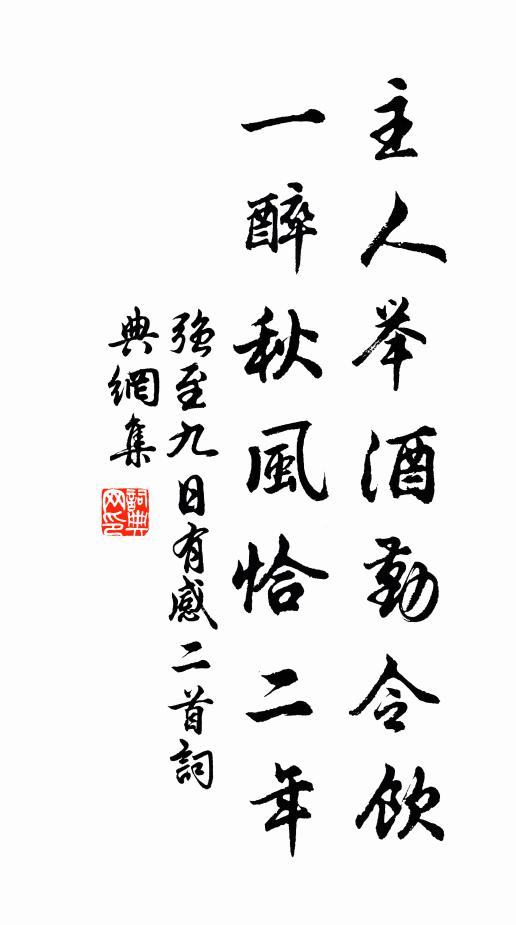 主人举酒勤令饮
一醉秋風恰二年
強至九日有感二首詞
典網集
詞典网印